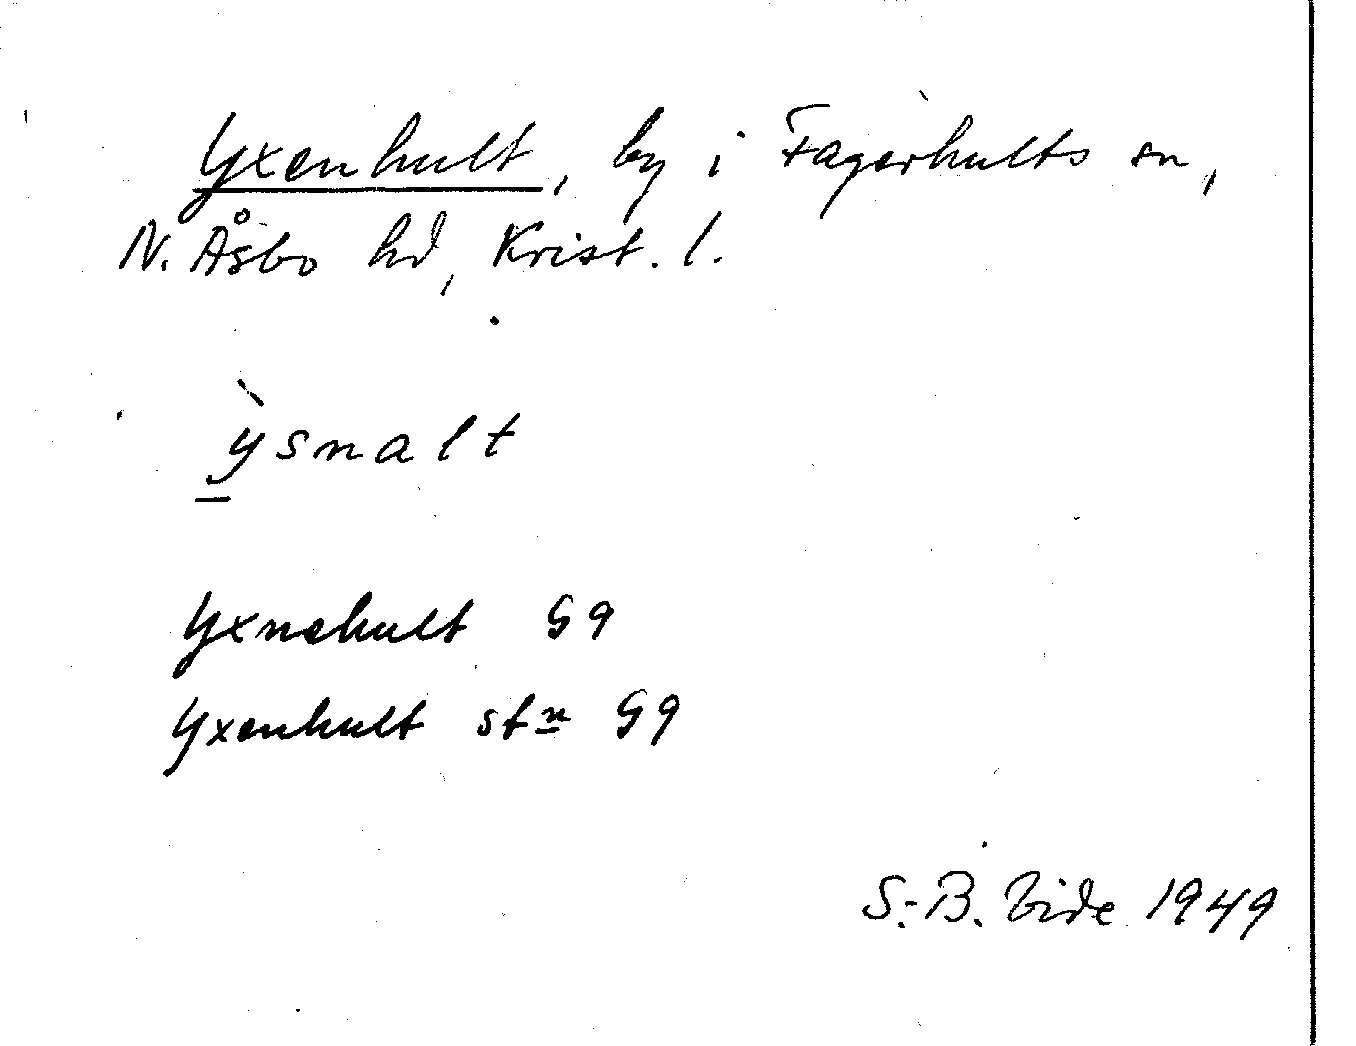 Yxenhult, by i Fagerhults sn,
N. Åsbo hd, Krist. l.
ỳsnalt
Yxnehult G9
Yxenhult stn G9
S.-B. Vide 1949